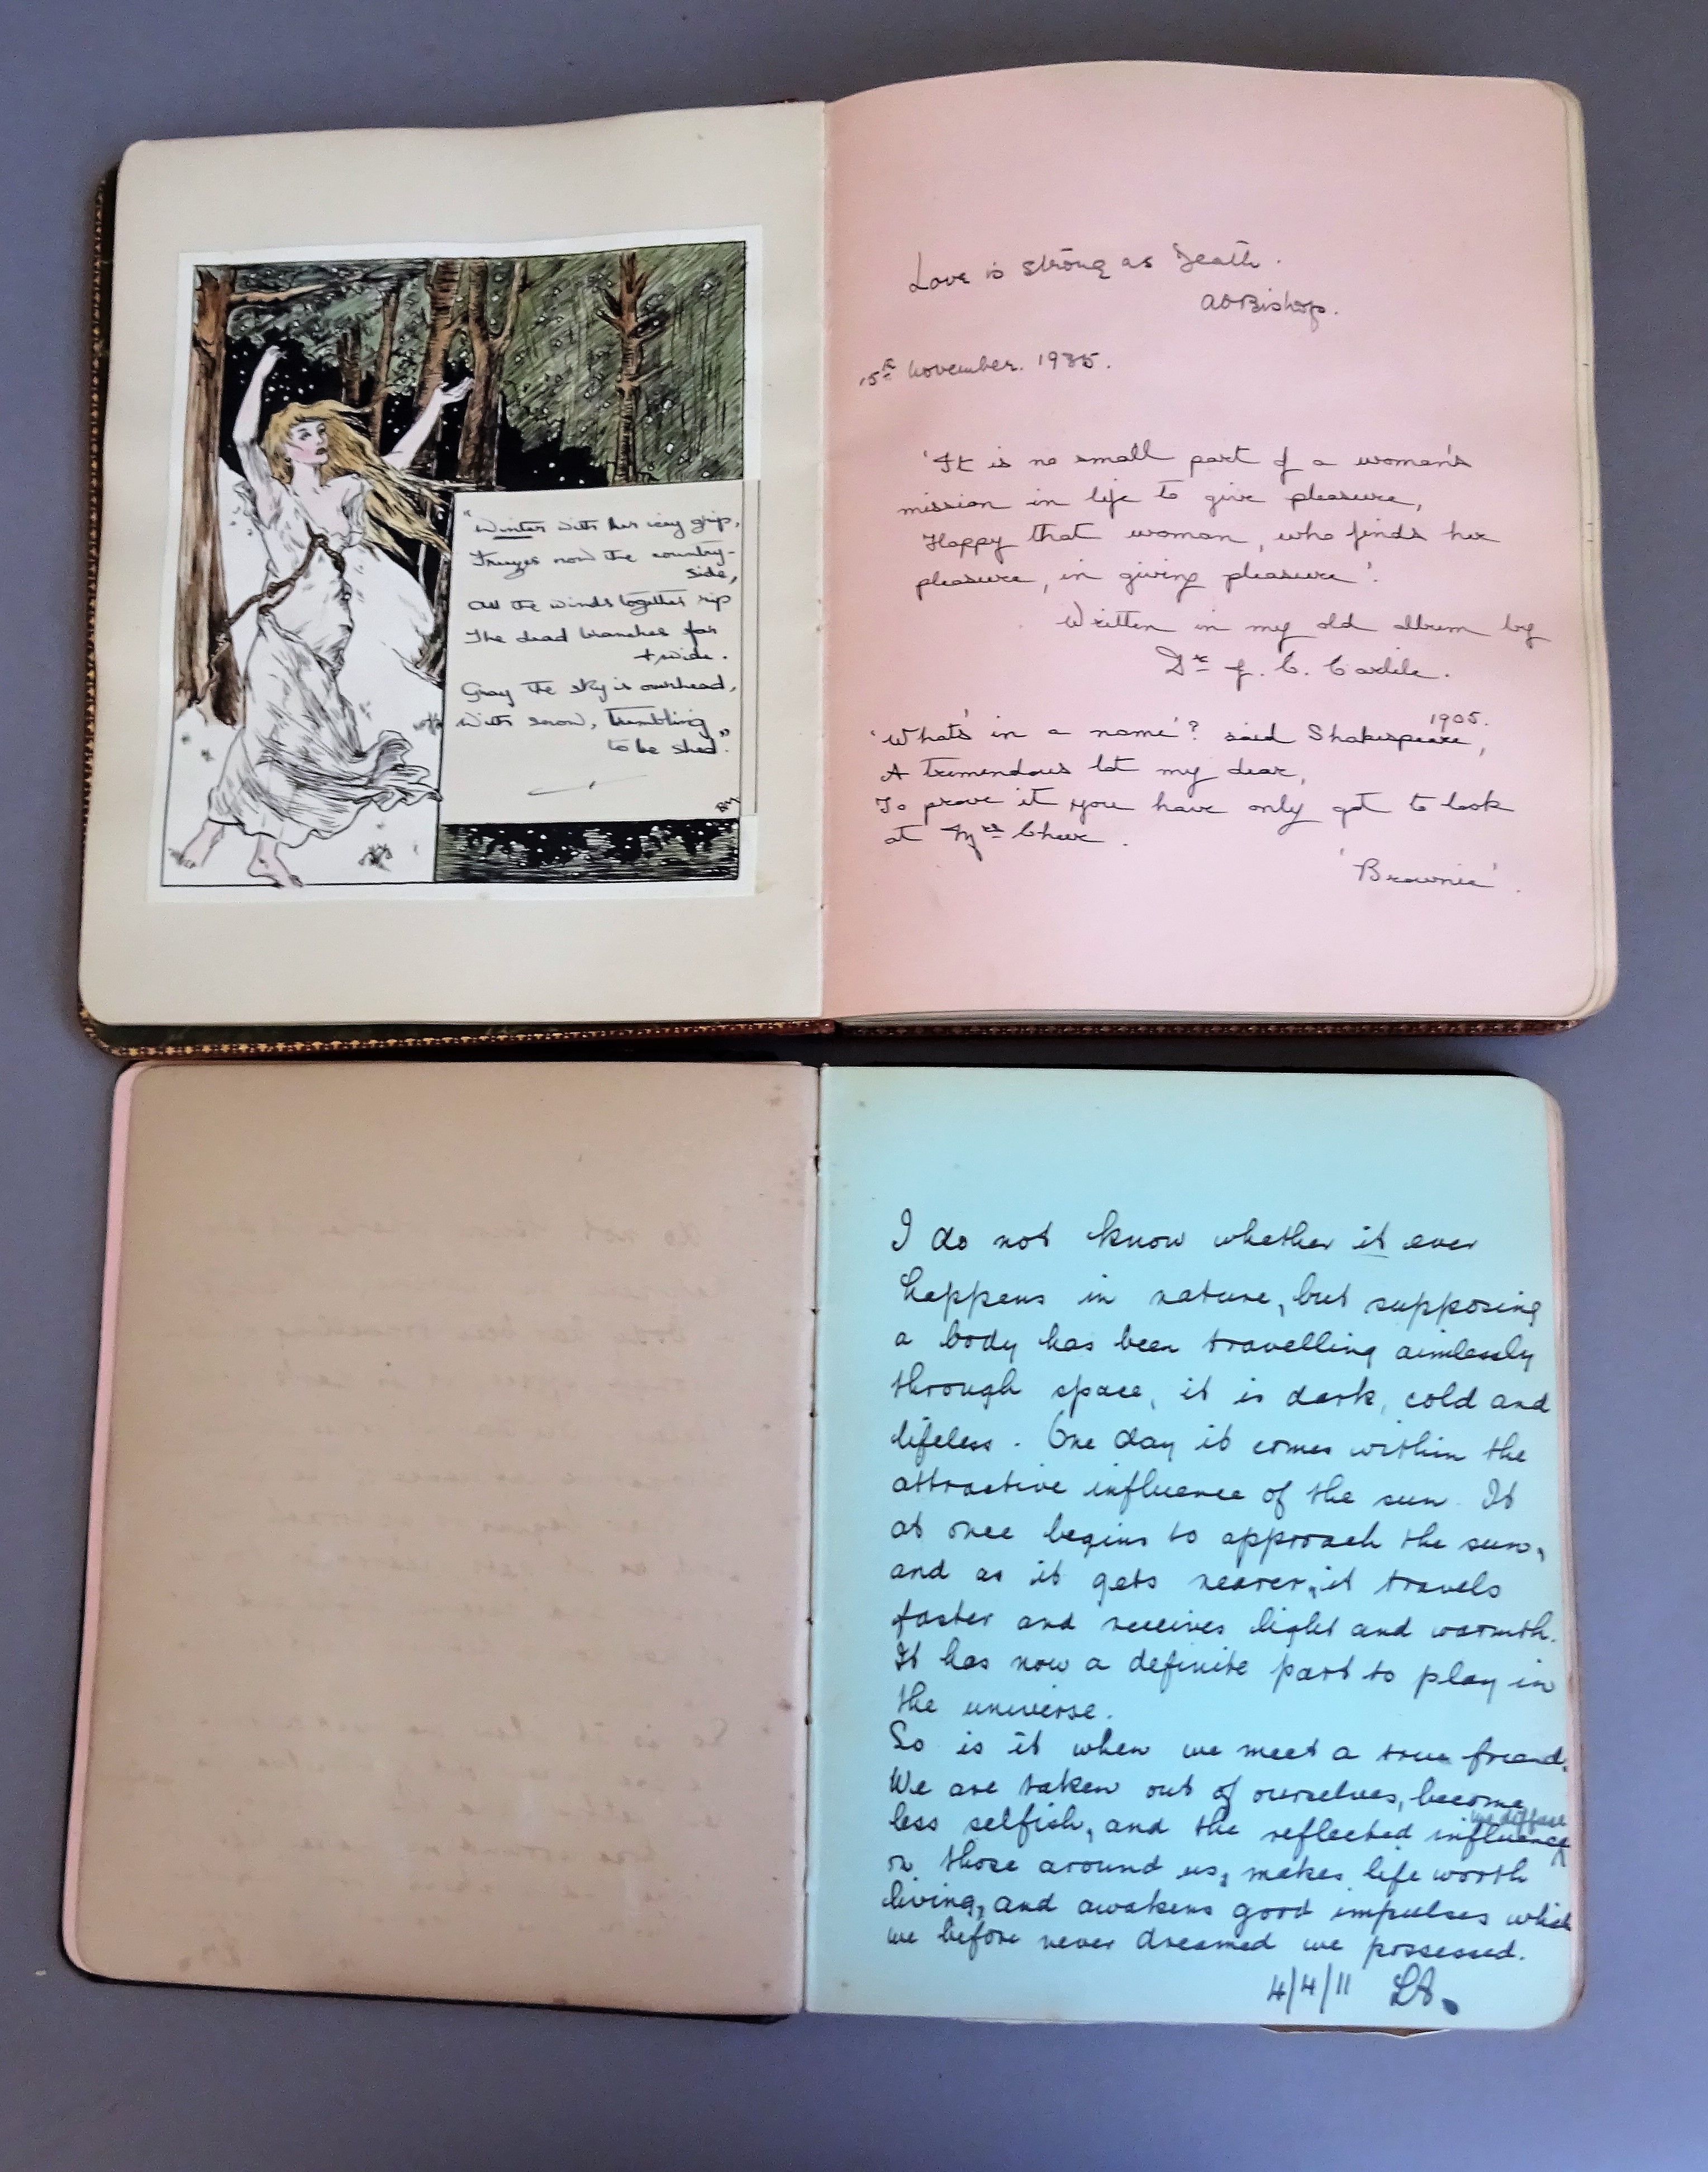 "Winter with her icy grip,
Freezes now the country-
side,
All the winds together rip
The dead branches far
+ wide.
Gray the sky is overhead,
With snow, trembling
to be shed."
BM
Love is strong as Death.
Bishop.
15th November. 1935.
'It is no small part of a woman's
mission in life to give pleasure,
Happy that woman, who finds her
pleasure, in giving pleasure'.
Written in my old album by
Dr J. C. Carlile.
1905.
'What's in a name'? said Shakespeare,
A tremendous lot my dear,
To prove it you have only got to look
at Mrs Cheer.
'Brownie'.
I do not know whether it ever
happens in nature, but supposing
a body has been travelling aimlessly
through space, it is dark, cold and
lifeless. One day it comes within the
attractive influence of the sun. It
at once begins to approach the sun,
and as it gets nearer, it travels
faster and receives light and warmth.
It has now a definite part to play in
the universe.
So is it when we meet a true friend.
We are taken out of ourselves, become
less selfish, and the reflected influence
we diffuse
on those around us, makes life worth
living, and awakens good impulses which
we before never dreamed we possessed.
4/4/11 LA.